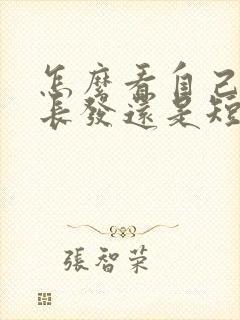 怎麼看自己
長發還是短
張智荣